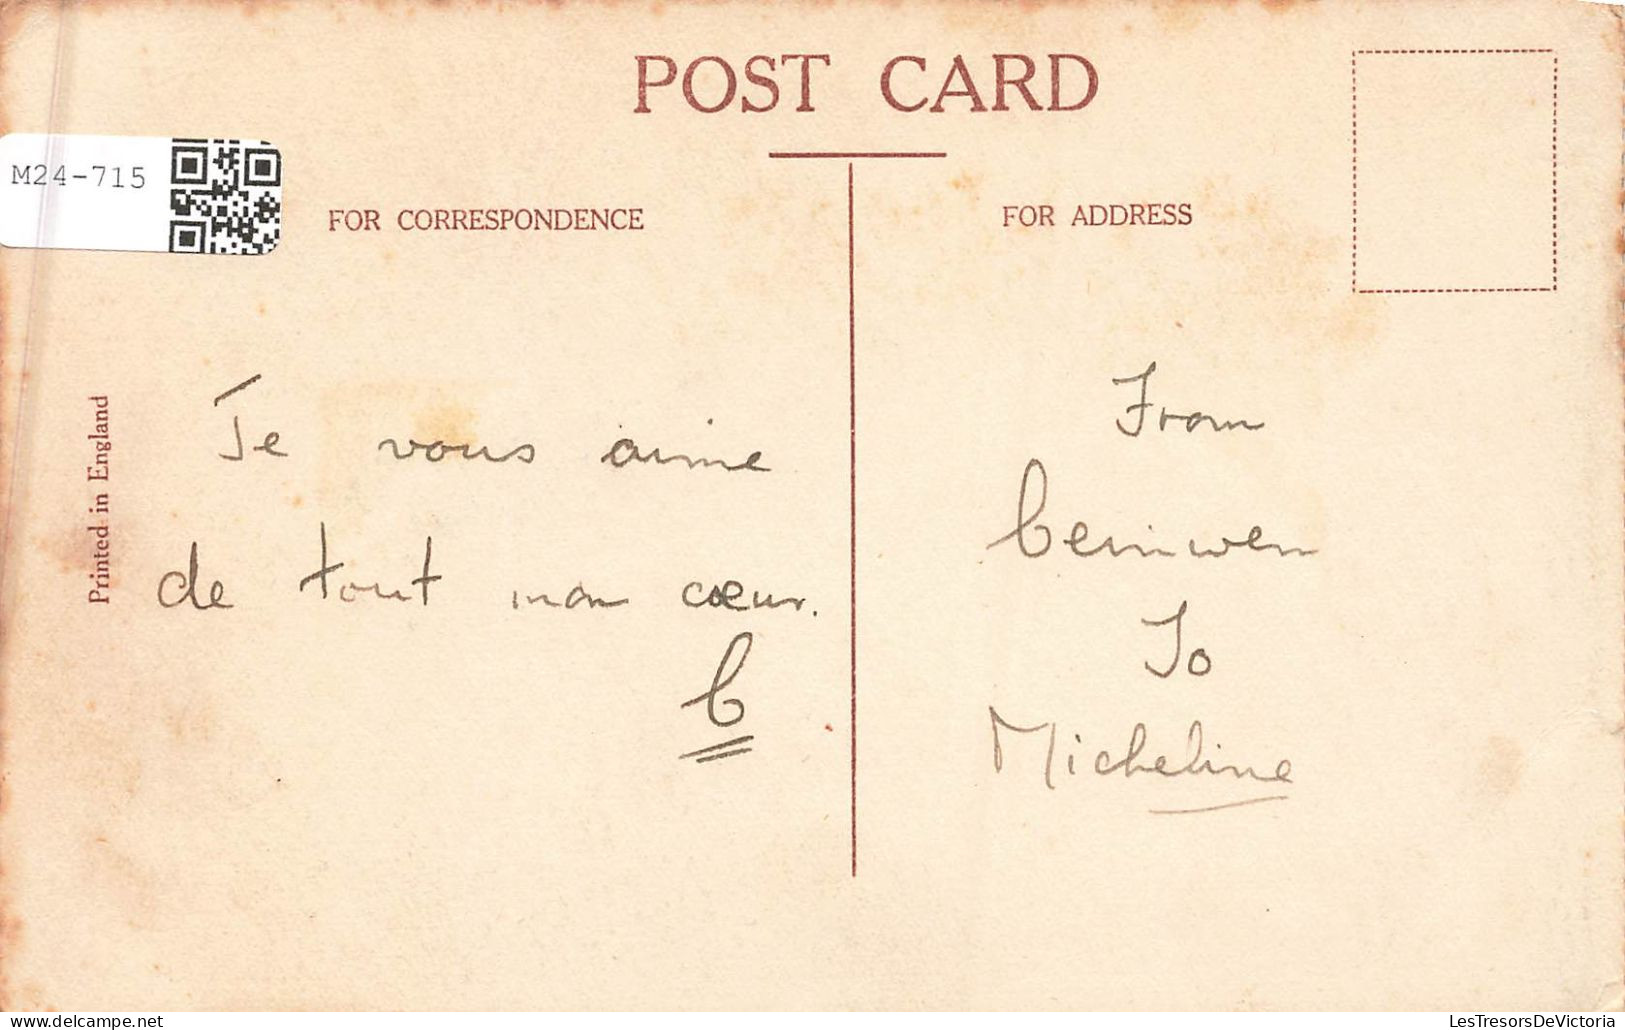 POST CARD
M24-715
FOR CORRESPONDENCE
FOR ADDRESS
Printed in England
Je vous aime
de tout mon cœur.
C
From
To
Micheline
delcampe.net
LesTresorsDeVictoria